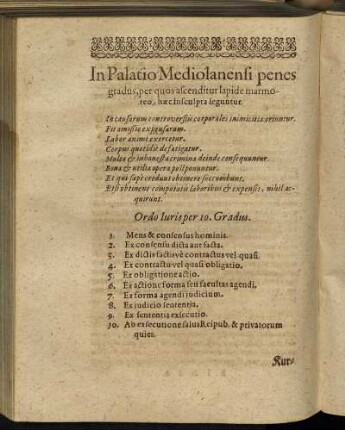 In Palatio Mediolanensi penes
gradus, per quos ascenditur lapide marmo-
reo, hæc insculpta leguntur.
In causarum controversiis corporales inimicitiæ oriuntur.
Fit amissio expensarum.
Labor animi exercetur.
Corpus quotidie defatigatur.
Multa & inhonesta crimina deinde consequuntur.
Bona & utilia opera postponuntur.
Et qui sæpe credunt obtinere succumbunt,
Et si obtinent computatis laboribus & expensis, nihil ac-
quirunt.
Ordo Iuris per 10. Gradus.
1. Mens & consensus hominis.
2. Ex consensu dicta aut facta.
3. Ex dictis factisvè contractus vel quasi.
4. Ex contractu vel quasi obligatio.
5. Ex obligatione actio.
6. Ex actione forma seu facultas agendi.
7. Ex forma agendi iudicium.
8. Ex iudicio sententia.
9. Ex sententia executio.
10. Ab executione salus Reipub. & privatorum
quies.
Kur-